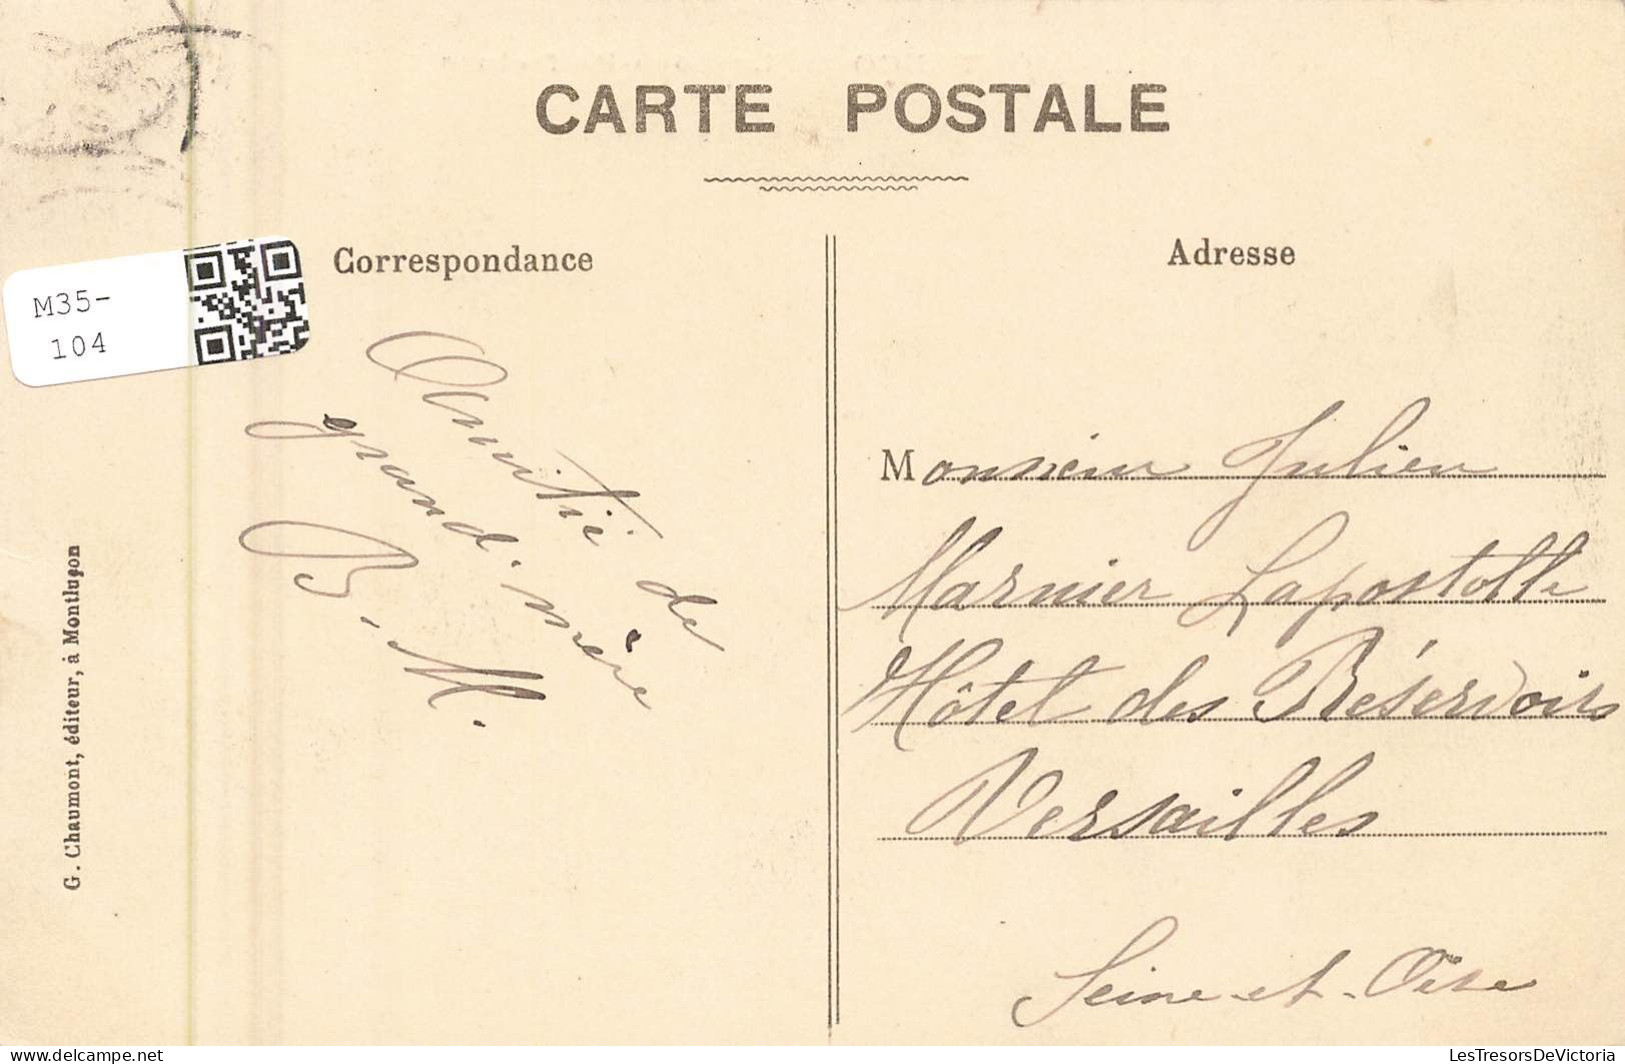 CARTE POSTALE
Correspondance
Adresse
M35-
104
Amitié de
grand'mère
B. M.
Monsieur Julien
Marnier Lapostolle
Hôtel des Réservoirs
Versailles
Seine-et-Oise
G. Chaumont, éditeur, à Montluçon
LesTresorsDeVictoria
delcampe.net